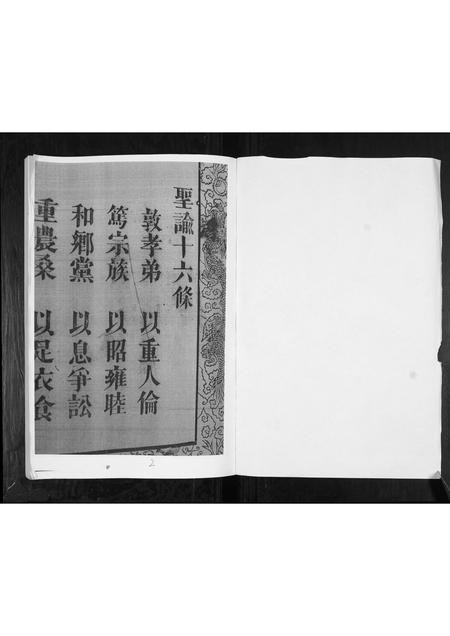 聖諭十六條
敦孝弟 以重人倫
篤宗族 以昭雍睦
和鄉黨 以息爭訟
重農桑 以足衣食
2